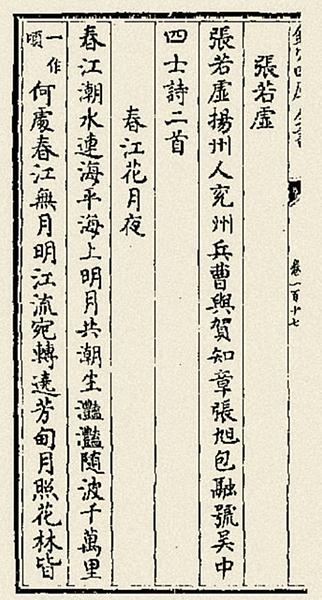 欽定四庫全書 卷一百十七
張若虛
張若虛揚州人兖州兵曹與賀知章張旭包融號吳中
四士詩二首
春江花月夜
春江潮水連海平海上明月共潮生灩灩隨波千萬里
一作頃何處春江無月明江流宛轉遶芳甸月照花林皆